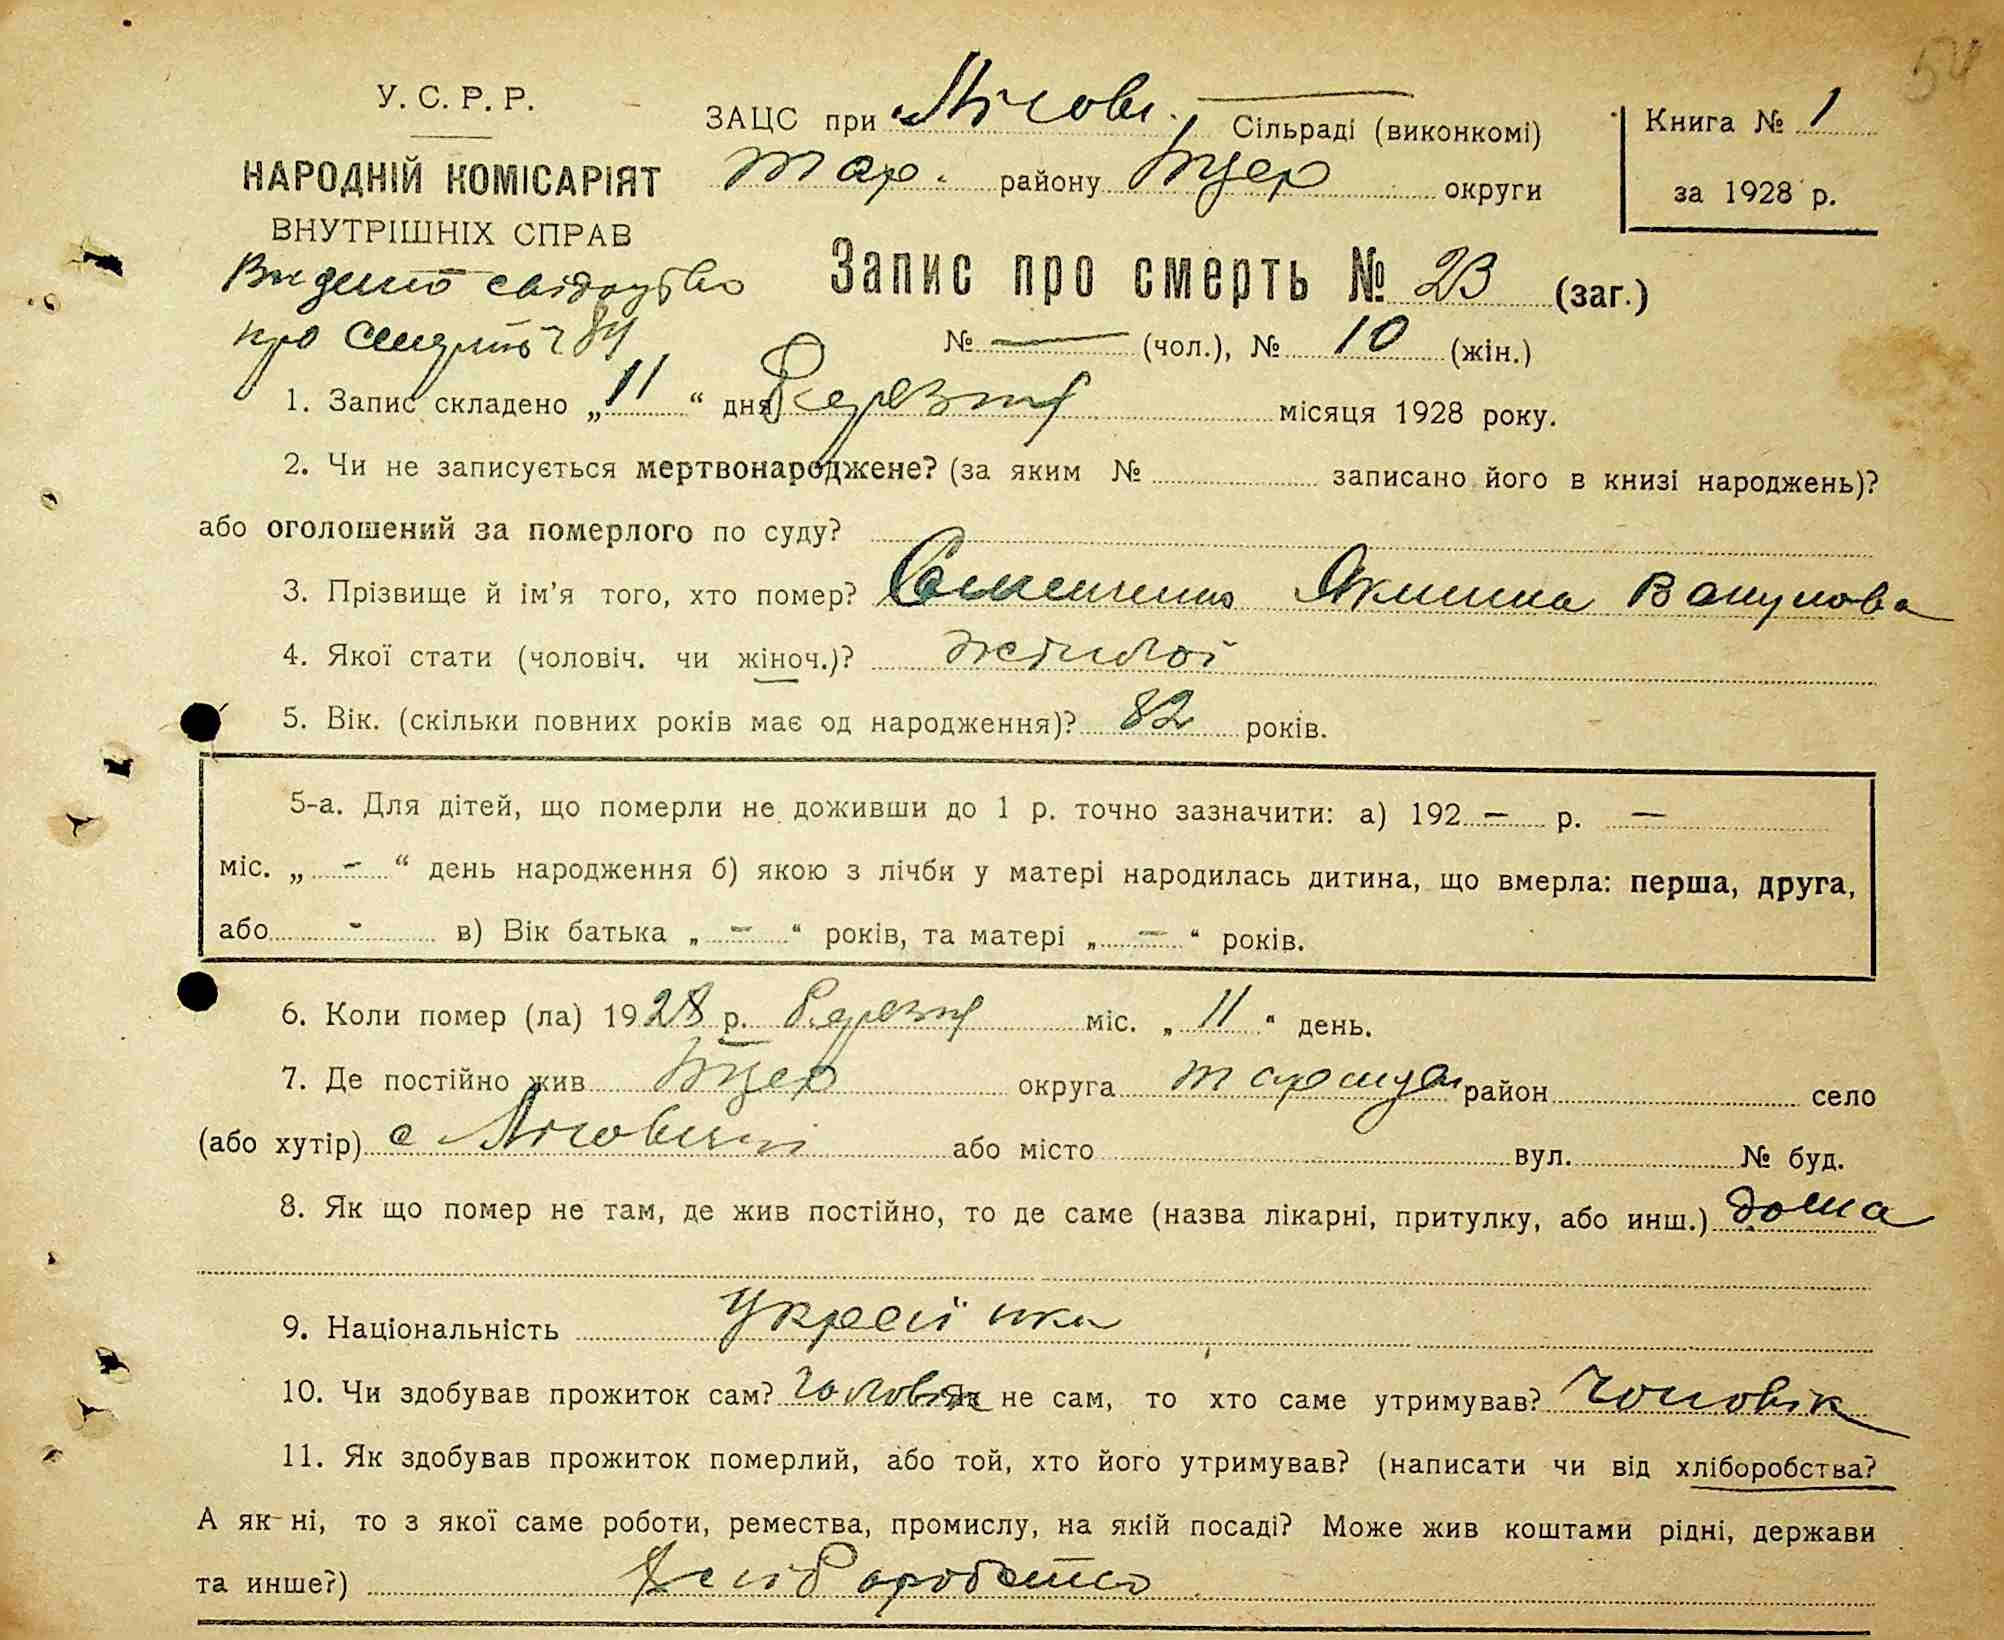 54
У. С. Р. Р.
НАРОДНІЙ КОМІСАРІЯТ
ВНУТРІШНІХ СПРАВ
ЗАЦС при Лісові. Сільраді (виконкомі)
Тар. району Бцер округи
Книга № 1
за 1928 р.
Видано свідоцтво
про смерть 84
Запис про смерть № 23 (заг.)
№ — (чол.), № 10 (жін.)
1. Запис складено „ 11 “ дня Березня місяця 1928 року.
2. Чи не записується мертвонароджене? (за яким № записано його в книзі народжень)?
або оголошений за померлого по суду?
3. Прізвище й ім'я того, хто помер? Якилина
4. Якої стати (чоловіч. чи жіноч.)? жіночої
5. Вік. (скільки повних років має од народження)? 82 років.
5-а. Для дітей, що померли не доживши до 1 р. точно зазначити: а) 192 — р. —
міс. „ - “ день народження б) якою з лічби у матері народилась дитина, що вмерла: перша, друга,
або - в) Вік батька „ — “ років, та матері „ — “ років.
6. Коли помер (ла) 1928 р. Березня міс. „ 11 “ день.
7. Де постійно жив Бцер округа Таращан район село
(або хутір) с або місто вул. № буд.
8. Як що помер не там, де жив постійно, то де саме (назва лікарні, притулку, або инш.) дома
9. Національність Українка
10. Чи здобував прожиток сам? чоловік Як не сам, то хто саме утримував? чоловік
11. Як здобував прожиток померлий, або той, хто його утримував? (написати чи від хліборобства?
А як ні, то з якої саме роботи, ремества, промислу, на якій посаді? Може жив коштами рідні, держави
та инше?) Хліборобство